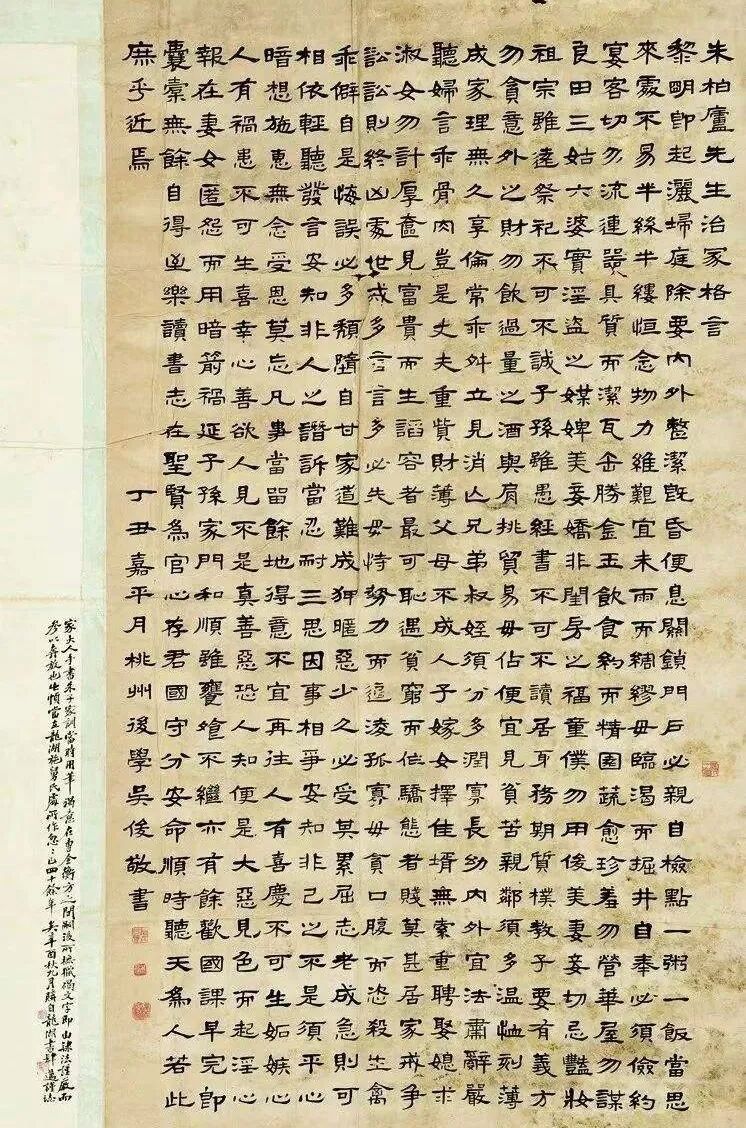 朱柏廬先生治家格言
黎朙即起灑埽庭除要內外整潔既昏便息關鎖門戶必親自檢點一粥一飯當思
來處不易半絲半縷恒念物力維艱宜未雨而綢繆毋臨渴而掘井自奉必須儉約
宴客切勿流連器具質而潔瓦缶勝金玉飲食約而精園蔬愈珍羞勿營華屋勿謀
良田三姑六婆實淫盜之媒婢美妾嬌非閨房之福童僕勿用俊美妻妾切忌豔妝
祖宗雖遠祭祀不可不誠子孫雖愚經書不可不讀居身務期質樸教子要有義方
勿貪意外之財勿飲過量之酒與肩挑貿易毋佔便宜見貧苦親鄰須多溫恤刻薄
成家理無久享倫常乖舛立見消亡兄弟叔姪須分多潤寡長幼內外宜法肅辭嚴
聽婦言乖骨肉豈是丈夫重貲財薄父母不成人子嫁女擇佳壻無索重聘娶媳求
淑女勿計厚奩見富貴而生諂容者最可恥遇貧窮而作驕態者賤莫甚居家戒爭
訟訟則終凶處世戒多言言多必失毋恃勢力而逼凌孤寡毋貪口腹而恣殺生禽
乖僻自是悔誤必多頹隨自甘家道難成狎暱惡少久必受其累屈志老成急則可
相依輕聽發言安知非人之譖訴當忍耐三思因事相爭安知非己之不是須平心
暗想施惠無念受恩莫忘凡事當留餘地得意不宜再往人有喜慶不可生妬嫉心
人有禍患不可生喜幸心善欲人見不是真善惡恐人知便是大惡見色而起淫心
報在妻女匿怨而用暗箭禍延子孫家門和順雖饔飧不繼亦有餘歡國課早完即
囊橐無餘自得至樂讀書志在聖賢為官心存君國守分安命順時聽天為人若此
庶乎近焉
丁丑嘉平月桃州後學吳俊敬書
家大人手書朱子家訓當時用筆滿意在曹全衡方之間嗣後所撫獵碣文字即由隸法謹嚴而
龍湖施舅氏處所作忽忽已四十餘年辛酉秋九月購自龍湖書肆邁謹誌